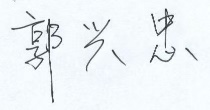 郭兴忠